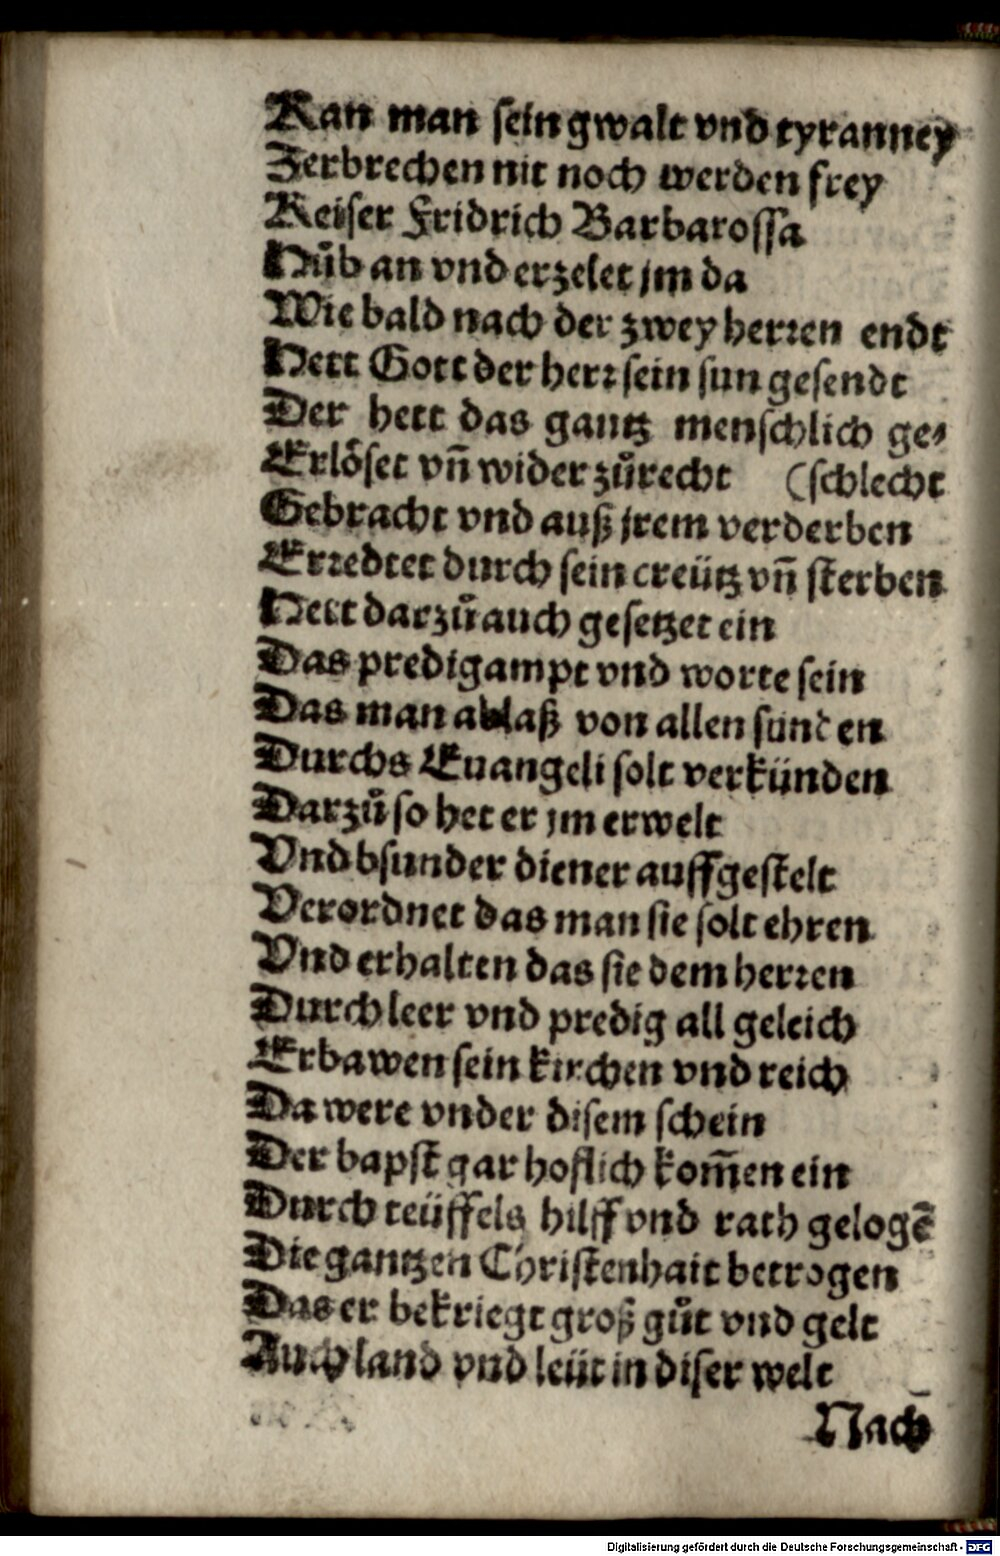 Kan man sein gwalt vnd tyranney
Zerbrechen nit noch werden frey
Keiser Fridrich Barbarossa
Hůb an vnd erzelet jm da
Wie bald nach der zwey herren endt
Hett Gott der herr sein sun gesendt
Der hett das gantz menschlich ge⸗
Erlöset vn̄ wider zůrecht (schlecht
Gebracht vnd auß jrem verderben
Erredtet durch sein creütz vn̄ sterben
Hett darzů auch gesetzet ein
Das predigampt vnd worte sein
Das man ablaß von allen sünden
Durchs Euangeli solt verkünden
Darzů so het er jm erwelt
Vnd bsunder diener auffgestelt
Verordnet das man sie solt ehren
Vnd erhalten das sie dem herren
Durch leer vnd predig all geleich
Erbawen sein kirchen vnd reich
Da were vnder disem schein
Der bapst gar hoflich kom̄en ein
Durch teüffels hilff vnd rath gelogē
Die gantzen Christenhait betrogen
Das er bekriegt groß gůt vnd gelt
Auch land vnd leüt in diser welt
Nach
Digitalisierung gefördert durch die Deutsche Forschungsgemeinschaft - DFG